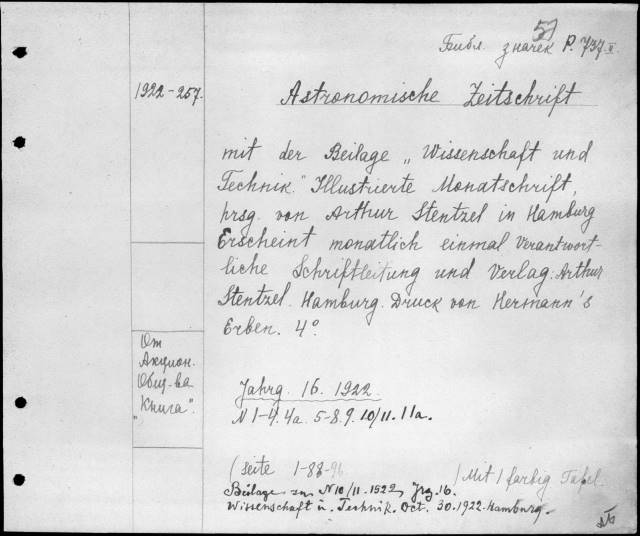 57
Библ. значек P. 737 II
1922-257.
Astronomische Zeitschrift
mit der Beilage „Wissenschaft und
Technik." Illustrierte Monatschrift,
hrsg. von Arthur Stentzel in Hamburg
Erscheint monatlich einmal Verantwort-
liche Schriftleitung und Verlag: Arthur
Stentzel. Hamburg. Druck von Hermann's
Erben. 4°.
От
Акцион.
Общ-ва
"Книга".
Jahrg. 16. 1922.
N 1-4. 4a. 5-8. 9. 10/11. 11a.
(seite 1-88-96
) Mit 1 farbig Tafel.
Beilage zu N 10/11. 1922, Jrg. 16.
Wissenschaft u. Technik. Oct. 30. 1922. Hamburg.